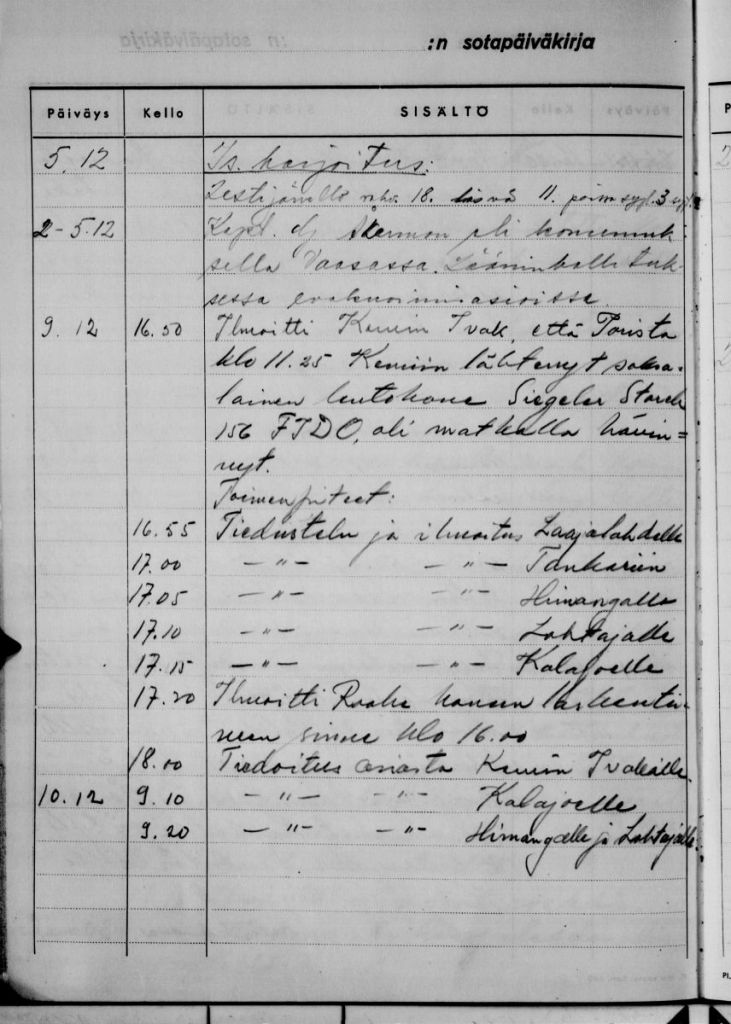 :n sotapäiväkirja
Päiväys Kello SISÄLTÖ
5.12 Is. harjoitus:
Lestijärvellä 18. läsnä 11.
2-5.12 Kapt. oli komennuk-
sella Vaasassa Lääninhallituk-
sessa evakuoimisasioissa.
9.12 16.50 Ilmoitti Kemin Ivak, että Porista
klo 11.25 Kemiin lähtenyt saksa-
lainen lentokone Siegeler Storch
156 FTDO, oli matkalla hävin=
nyt.
Toimenpiteet:
16.55 Tiedustelu ja ilmoitus Laajalahdelle
17.00 — " — — " — Tankariin
17.05 — " — — " — Himangalle
17.10 — " — — " — Lohtajalle
17.15 — " — — " — Kalajoelle
17.20 Ilmoitti Raahe koneen laskeutu-
neen sinne klo 16.00
18.00 Tiedoitus asiasta Kemin Ivakille.
10.12 9.10 — " — — " — Kalajoelle
9.20 — " — — " — Himangalle ja Lohtajalle.